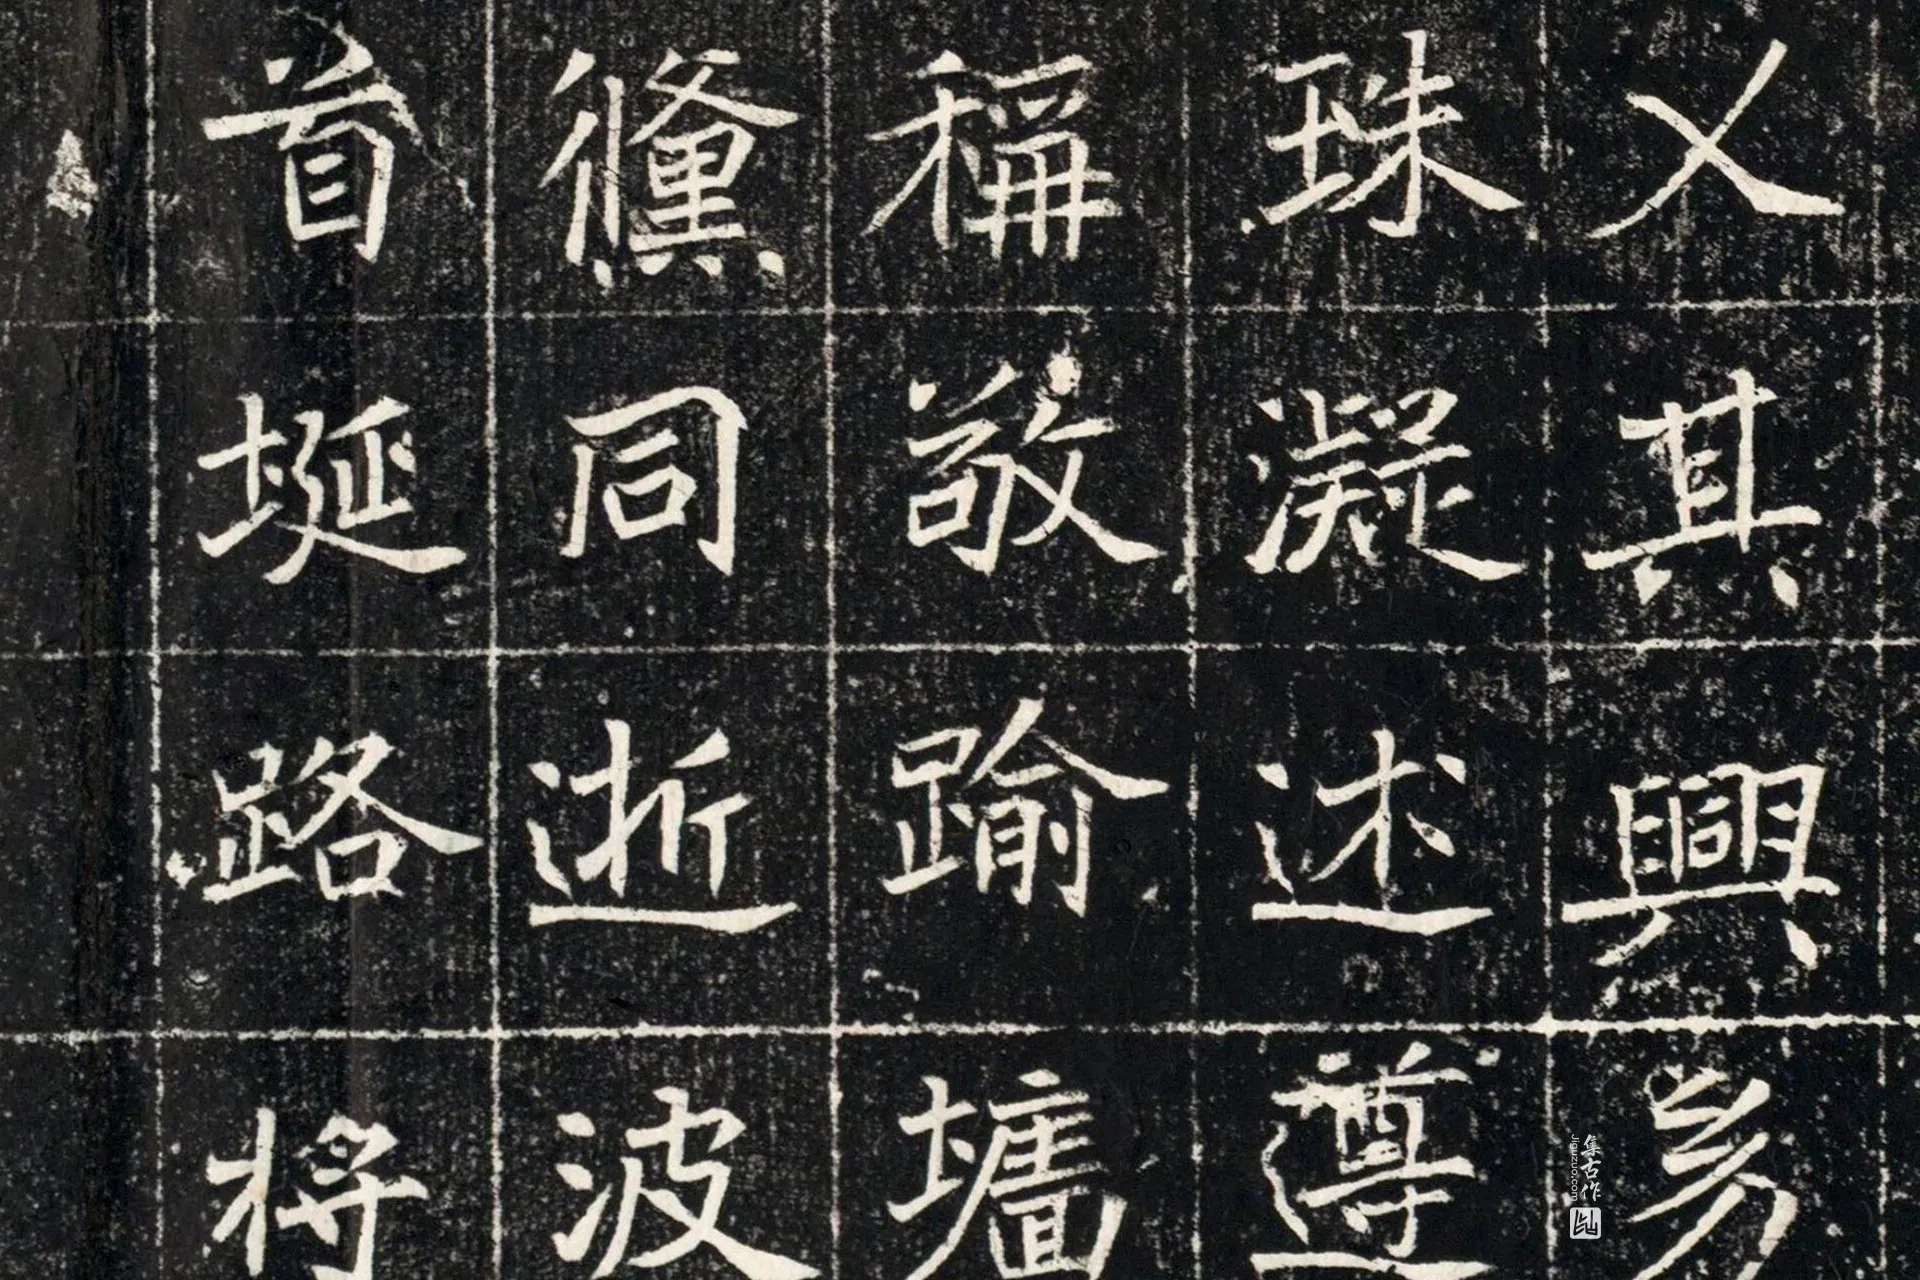 乂其興芻
珠凝述遵
稱敬踰墻
儵同逝波
首埏路将
集古作
Jiguzuo.com